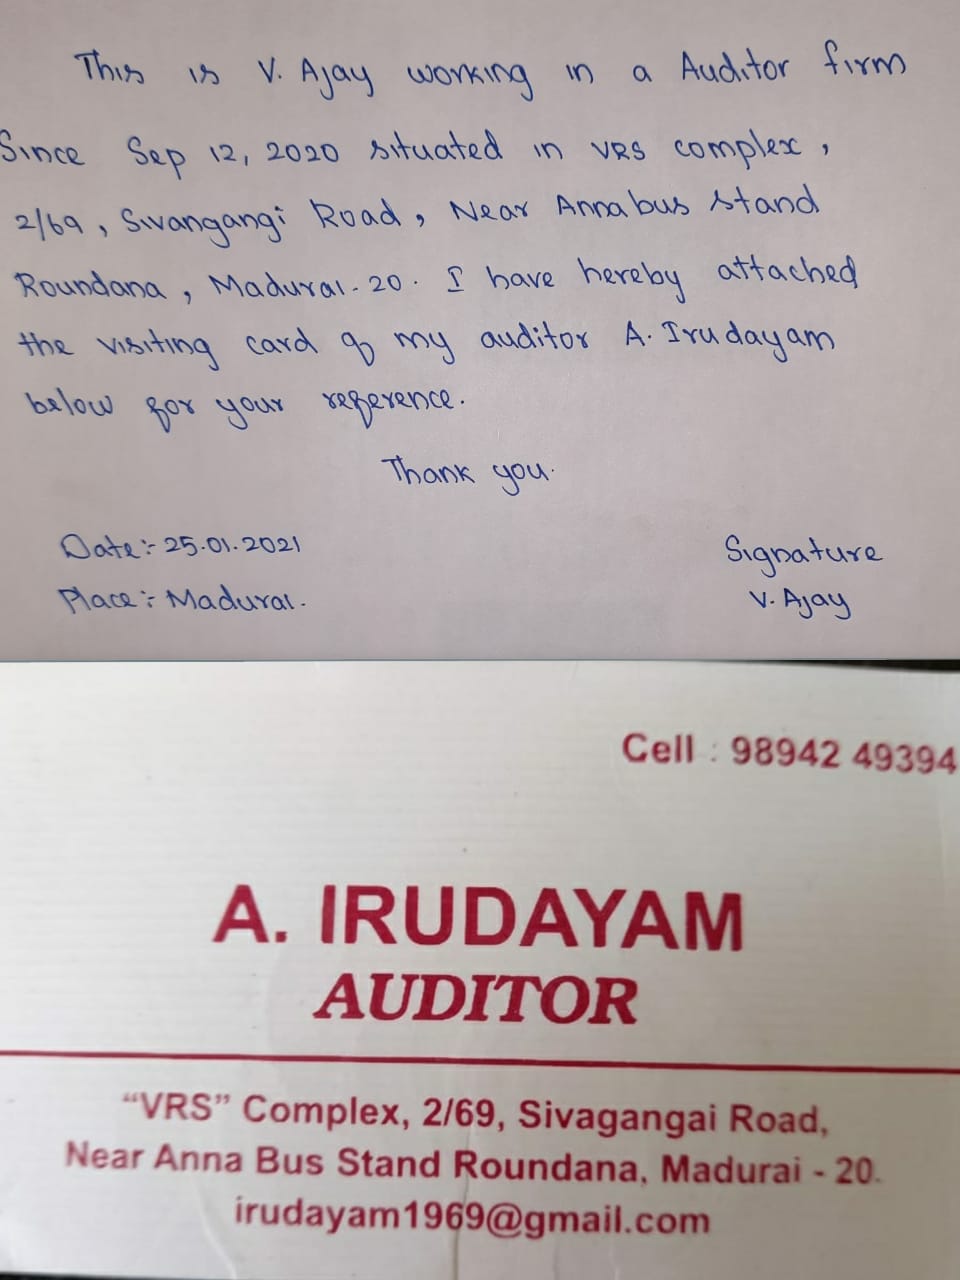 This is V. Ajay working in a Auditor firm
Since Sep 12, 2020 situated in VRS complex,
2/69, Sivangangi Road, Near Anna bus stand
Roundana, Madurai-20. I have hereby attached
the visiting card of my auditor A. Irudayam
below for your reference.
Thank you.
Date:- 25.01.2021
Signature
Place:- Madurai.
V. Ajay
Cell : 98942 49394
A. IRUDAYAM
AUDITOR
“VRS” Complex, 2/69, Sivagangai Road,
Near Anna Bus Stand Roundana, Madurai - 20.
irudayam1969@gmail.com